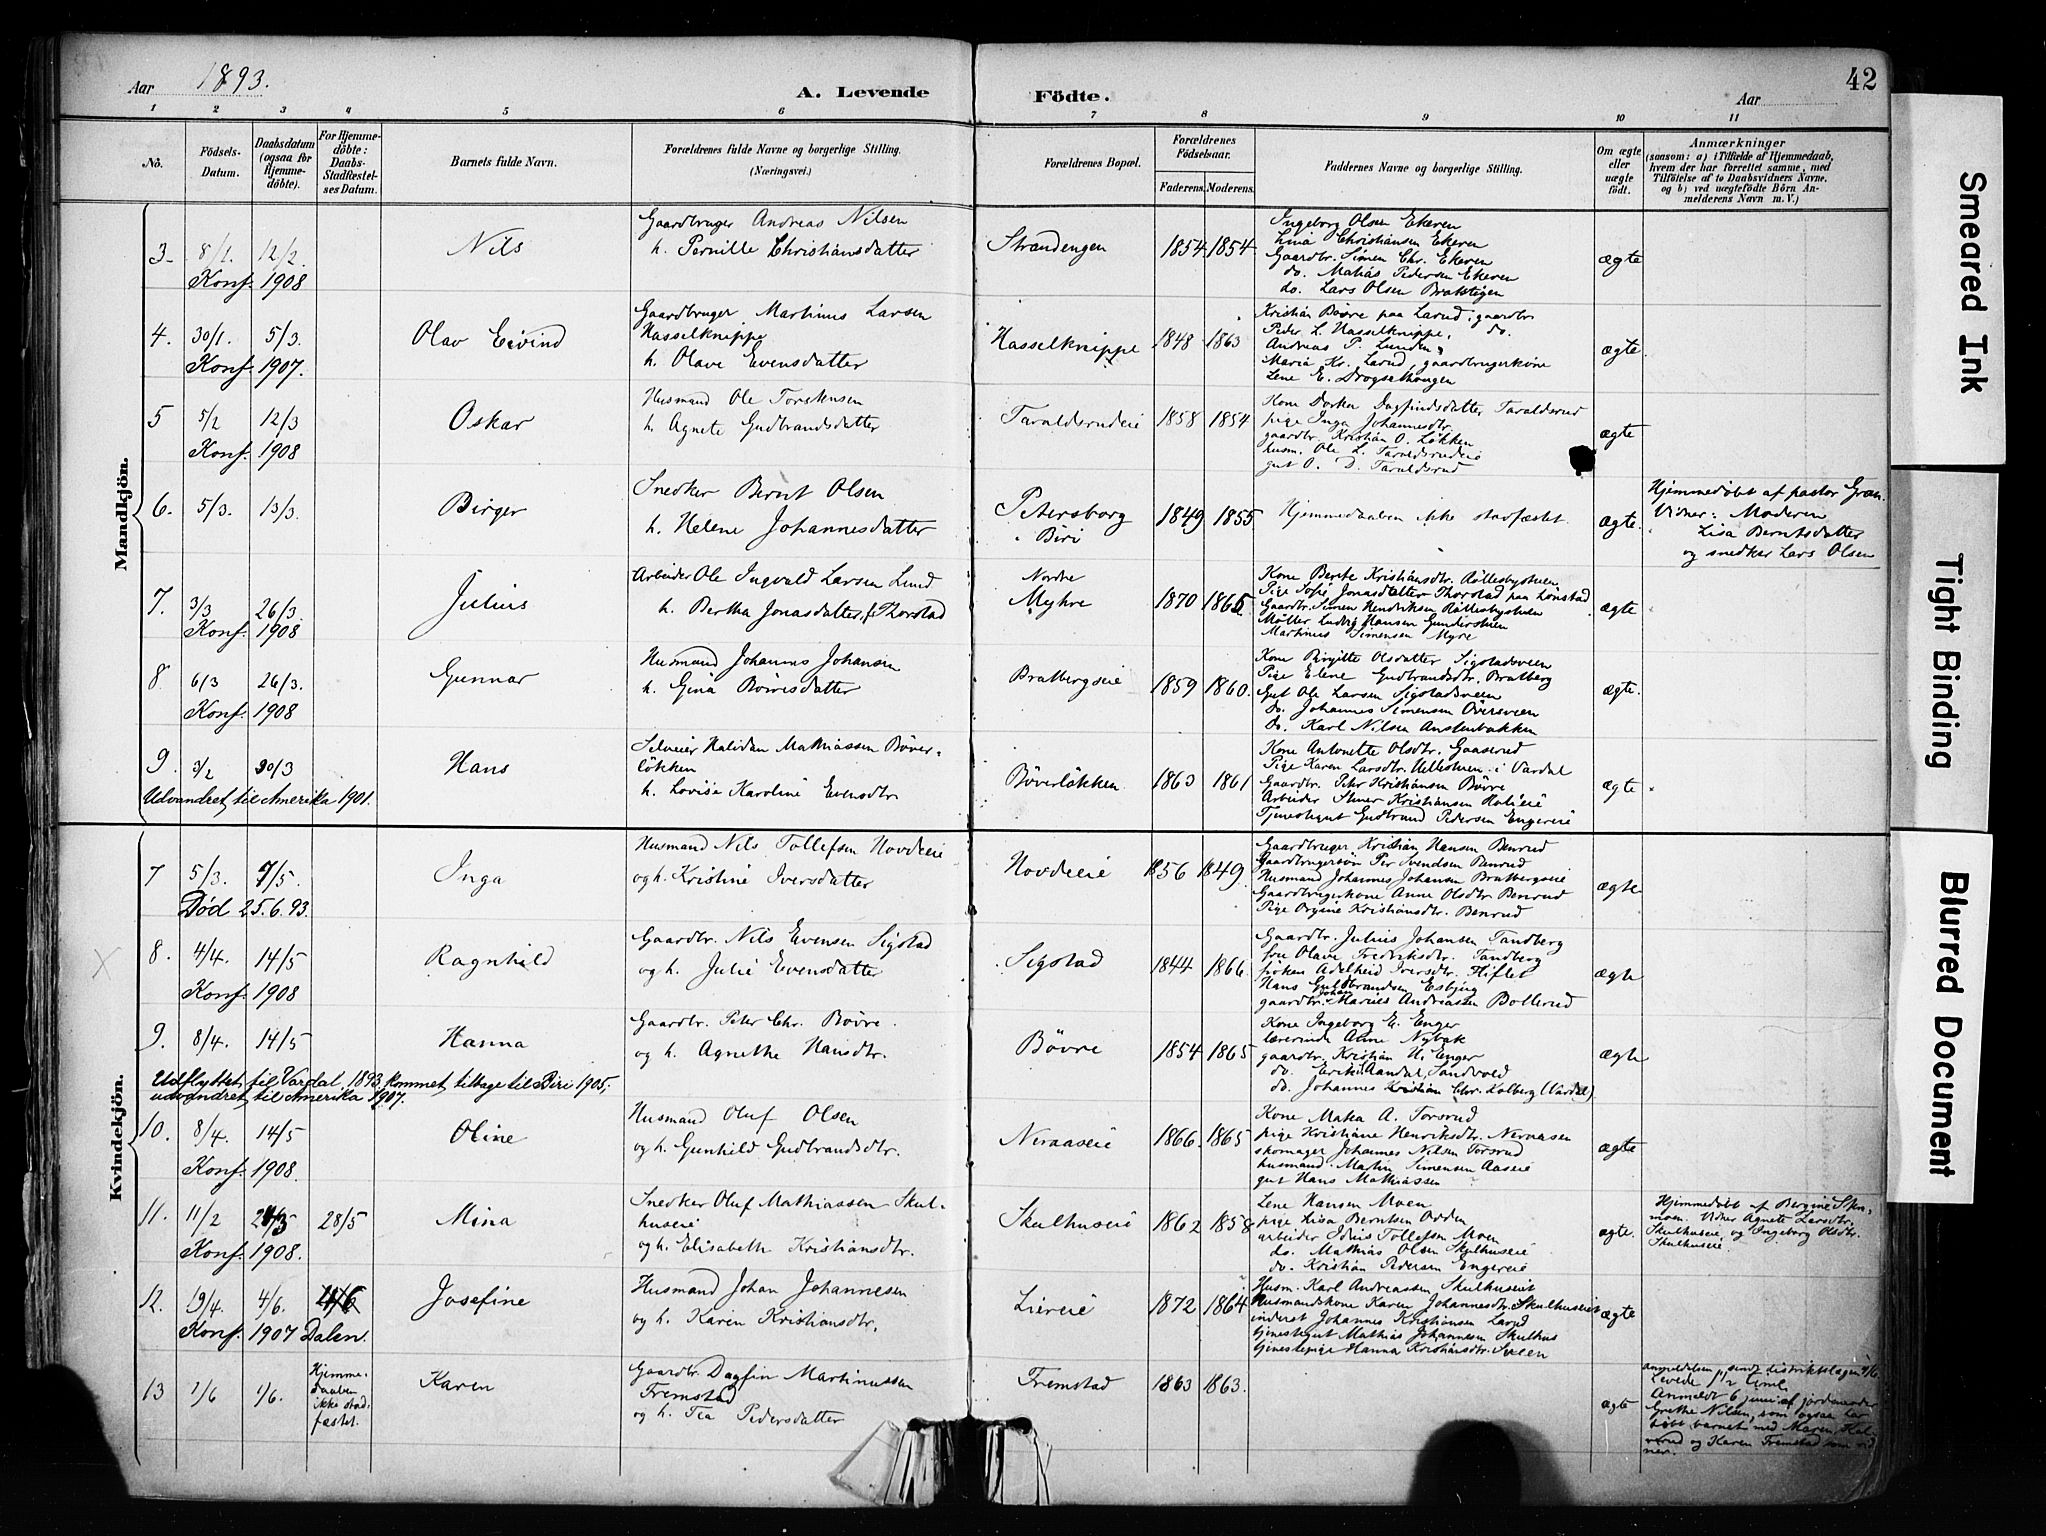 Aar 1893.
A. Levende Födte.
Aar
42
1 2 3 4 5 6 7 8 9 10 11
No.
Födsels-Datum.
Daabsdatum (ogsaa for Hjemme-döbte).
For Hjemme-döbte: Daabs-Stadfæstel-ses Datum.
Barnets fulde Navn.
Forældrenes fulde Navne og borgerlige Stilling. (Næringsvei.)
Forældrenes Bopæl.
Forældrenes Födselsaar.
Faderens. Moderens.
Faddernes Navne og borgerlige Stilling.
Om ægte eller uægte födt.
Anmærkninger
(saasom: a) i Tilfælde af Hjemmedaab, hvem der har forrettet samme, med Tilföielse af to Daabsvidners Navne, og b) ved uægtefödte Börn An-melderens Navn m. V.)
Mandkjön.
3. 8/1. 12/2. Nils
Gaardbruger Andreas Nilsen
h. Pernille Christiansdatter
Strandengen 1854. 1854.
Ingeborg Olsen Ekeren
Lina Christiansen Ekeren
Gaardbr. Simen Chr. Ekeren
do. Mathias Pedersen Ekeren
do. Lars Olsen
ægte
Konf. 1908
4. 30/1. 5/3. Olav Eivind
Gaardbruger Martinus Larsen
Hasselknippe
h. Olave Evensdatter
Hasselknippe 1848 1863
Kristian Bövre paa Larud, gaardbr.
Peder L. Hasselknippe, do.
Andreas P. Lunden
Maria Kr. Larud, gaardbrugerkone
Lene E. Drogsethaugen
ægte.
Konf. 1907.
5 5/2 12/3 Oskar
Husmand Ole Torstensen
h. Agnete Gudbrandsdatter
Taraldsrudeie 1858 1854
Kone Dorthea Dagfindsdatter, Taraldsrud
pige Inga Johannesdtr.
gaardbr. Kristian O. Løkken
husm. Ole L. Taraldsrudeie
gut O. D. Taraldsrud
ægte
Konf. 1908
6. 5/3. 13/3. Birger
Snedker Bernt Olsen
h. Helene Johannesdatter
Petersborg
i Biri
1849 1855
Hjemmedaaben ikke stadfæstet.
ægte.
Hjemmedøbt af pastor
Vidner: Moderen
Lisa Berntsdatter
og snedker Lars Olsen
7. 3/3 26/3. Julius
Arbeider Ole Ingvald Larsen Lund
h. Bertha Jonasdatter, f. Thorstad
Nordre
Myhre
1870 1865
Kone Berte Kristiansdtr.
Pige Sofie Jonasdatter Thorstad paa Lønstad
Gaardbr. Simen Hendriksen
Møller Ludvig Hansen Gunderstuen
Martinus Simensen Myre
ægte
Konf. 1908
8. 6/3 26/3. Gunnar
Husmand Johannes Johansen
h. Gina Boivesdatter
Bratbergseie 1859 1860.
Kone Birgitte Olsdatter Sigstadsveen
Pige Elene Gudbrandsdtr. Bratberg
Gut Ole Larsen Sigstadsveen
do. Johannes Simensen Översveen
do. Karl Nilsen
ægte.
Konf. 1908
9. 3/2 30/3 Hans
Selveier Halvdan Mathiassen Böver-
lökken
h. Lovise Karoline Evensdtr
Böverlökken. 1863 1861
Kone Antonette Olsdtr. Gaaserud
Pige Karen Larsdtr. i Vardal
Gaardbr. Peter Kristiansen Bövre
Arbeider Kristiansen
Tjenestegut Gudbrand Pedersen Engereie
ægte
Udvandret til Amerika 1901.
Kvindekjön.
7 5/3. 7/5. Inga
Husmand Nils Tollefsen Hovdeeie
og h. Kristine Iversdatter
Hovdeeie 1856 1849.
Gaardbruger Kristian Hansen Benrud
Gaardbrugersön Per Svendsen Benrud
Husmand Johannes Johansen Bratbergseie
Gaardbrugerkone Anne Olsdtr. Benrud
Pige Kristiansdtr. Benrud
ægte
Død 25.6.93.
8. 4/4. 14/5 Ragnhild
Gaardbr. Nils Evensen Sigstad
og h. Julie Evensdatter
Sigstad 1844 1866.
Gaardbr. Julius Johansen Tandberg
fru Olave Fredriksdtr. Tandberg
frøken Adelheid Iversdtr. Hiflet
Hans Gudbrandsen Esbjug
gaardbr. Johan Marius Andreassen Bollerud
ægte
Konf. 1908
9. 8/4. 14/5 Hanna
Gaardbr. Peter Chr. Bövre.
og h. Agnethe Hansdtr.
Bövre 1854 1865
Kone Ingeborg E. Enger
lærerinde Aline Nybak
gaardbr. Kristian H. Enger
do. Erik Aandal, Sandvold
do. Johannes Kristian Chr. Kolberg (Vardal)
ægte
Udflyttet til Vardal 1893, kommet tilbage til Biri 1905;
udvandret til Amerika 1907.
10. 8/4. 14/5 Oline
Husmand Oluf Olsen
og h. Gunhild Gudbrandsdtr.
Neraaseie 1866. 1865
Kone Mathea A. Torsrud
pige Kristiane Henriksdtr. Neraasen
skomager Johannes Nilsen Torsrud
husmand Martin Simensen Aaseie
gut Hans Mathiassen
ægte
Konf. 1908.
11. 11/2 28/5 Mina
Snedker Oluf Mathiassen Skul-
huseie
og h. Elisabeth Kristiansdtr.
Skulhuseie 1862 1858
Lene Hansen Moen
pige Lisa Berntsen Odden
arbeider Tollefsen Moen
do. Mathias Olsen Skulhuseie
do. Kristian Pedersen Engereie
ægte.
Hjemmedøbt af Bergine
moen. Vidner Agnete Larsdtr.
Skulhuseie, og Ingeborg Olsdtr.
Skulhuseie.
Konf. 1908.
12. 19/4. 4/6. 4/6 Josefine
Husmand Johan Johannesen
og h. Karen Kristiansdtr.
Liereie 1872 1864
Husm. Karl Andreassen Skulhuseie
Husmandskone Karen Johannesdtr. Skulhuseie
inderst Johannes Kristiansen Larud
tjenestegut Mathias Johannesen Skulhus
tjenestepige Hanna Kristiansdtr. Sveen
ægte
Konf. 1907 Dalen.
13 1/6 1/6.
Hjemme-
daaben
ikke stad-
fæstet.
Karen
Gaardbr. Dagfin Martinussen
Fremstad
og h. Tea Pedersdatter
Fremstad 1863 1863.
ægte
anmeldelsen sendt distriktslægen 7/6.
Levede 1 1/2 time.
Anmeldt 6 juni af jordemoder
Grethe Nilsen, som ogsaa har
døbt barnet med Maren
og Karen Fremstad som vid-
ner.
Smeared Ink
Tight Binding
Blurred Document